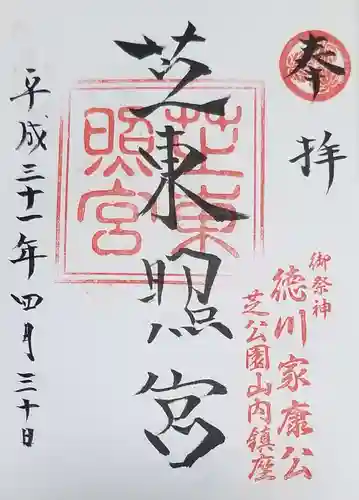 奉拝
御祭神
徳川家康公
芝公園山内鎮座
芝東照宮
芝東照宮
平成三十一年四月三十日